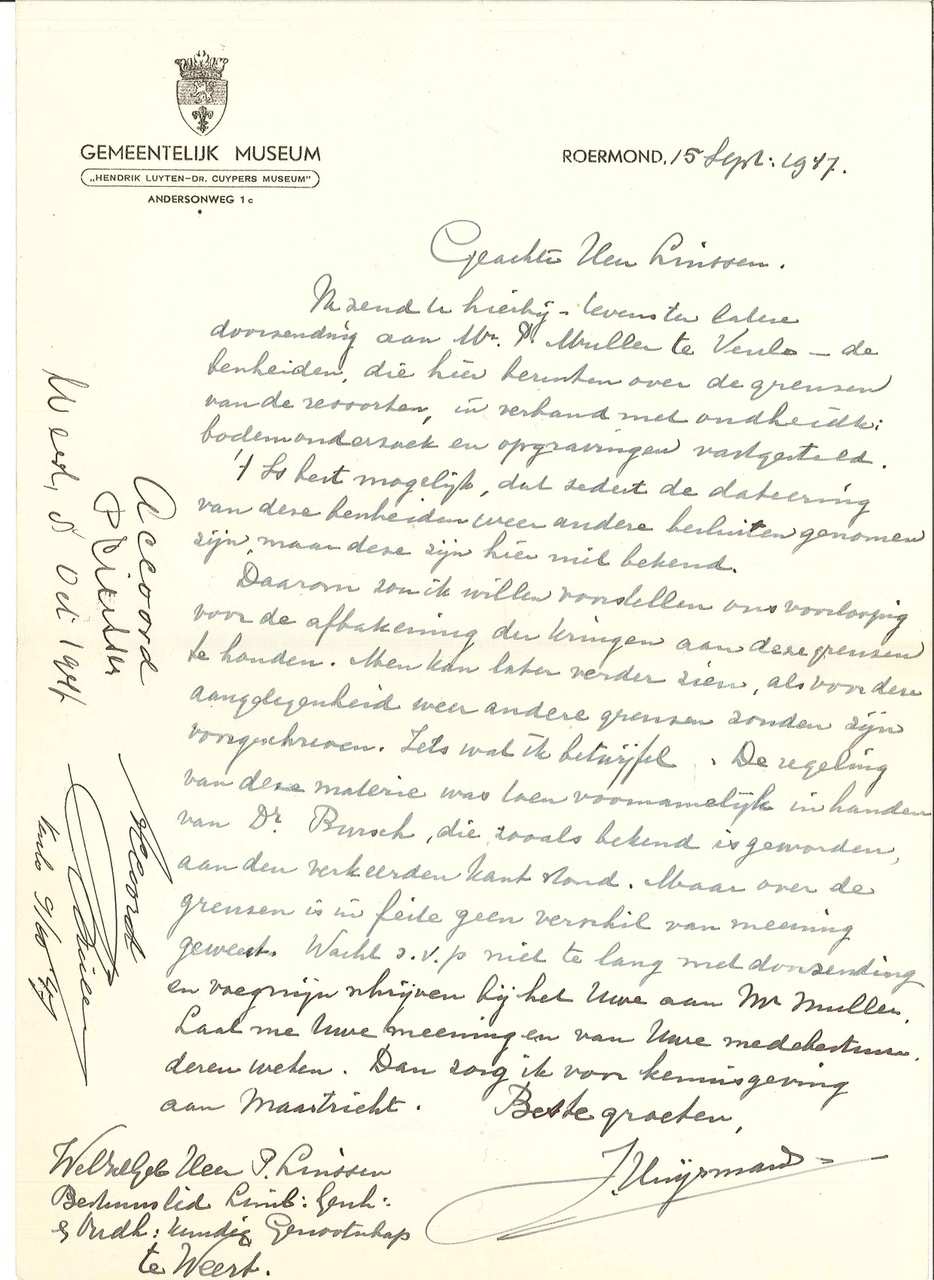 GEMEENTELIJK MUSEUM
„HENDRIK LUYTEN-DR. CUYPERS MUSEUM"
ANDERSONWEG 1c
ROERMOND, 15 Sept: 1947.
Geachte Heer Linssen.
Ik zend U hierbij – tevens ter latere
doorzending aan Mr. P. Muller te Venlo – de
bescheiden, die hier berusten over de grenzen
van de ressorten, in verband met oudheidk:
bodemonderzoek en opgravingen vastgesteld.
't Is best mogelijk, dat sedert de dateering
van deze bescheiden weer andere besluiten genomen
zijn, maar deze zijn hier niet bekend.
Daarom zou ik willen voorstellen ons voorloopig
voor de afbakening der kringen aan deze grenzen
te houden. Men kan later verder zien, als voor deze
aangelegenheid weer andere grenzen zouden zijn
voorgeschreven. Iets wat ik betwijfel. De regeling
van deze materie was toen voornamelijk in handen
van Dr. Bursch, die zooals bekend is geworden,
aan den verkeerden kant stond. Maar over de
grenzen is in feite geen verschil van meening
geweest. Wacht s.v.p niet te lang met doorzending
en voeg mijn schrijven bij het Uwe aan Mr Muller.
Laat me Uwe meening en van Uwe medebestuur-
deren weten. Dan zorg ik voor kennisgeving
aan Maastricht. Beste groeten,
J. Huijsmans
WelEdGeb Heer P. Linssen
Bestuurslid Limb: Gesch:
& Oudh: kundig Genootschap
te Weert.
Accoord
Weert, 8 Oct 1947
Accoord
Venlo 9/10 '47